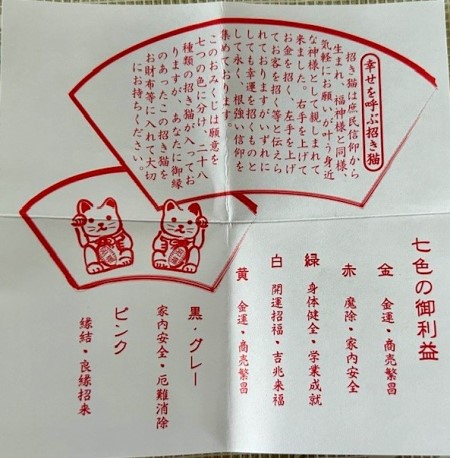 幸せを呼ぶ招き猫
招き猫は庶民信仰から
生まれ、福神様と同様、
気軽にお願いが叶う身近
な神様として親しまれて
来ました。右手を上げて
お金を招く、左手を上げ
てお客を招く等と伝えら
れておりますがいずれに
しても幸運を招くものと
して永く、根強い信仰を
集めております。
このおみくじは願意を
七つの色に分け、二十八
種類の招き猫が入ってお
りますが、あなたに御縁
のあったこの招き猫を
お財布等に入れて大切
にお持ちください。
七色の御利益
金 金運・商売繁昌
赤 魔除・家内安全
緑 身体健全・学業成就
白 開運招福・吉兆来福
黄 金運・商売繁昌
黒・グレー
家内安全・厄難消除
ピンク
縁結・良縁招来